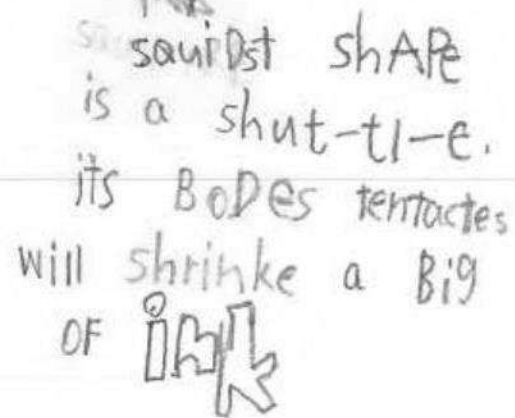 squiDst shAPe
is a shut-tl-e.
its BoDes tentacles
will shrinke a Big
OF ink